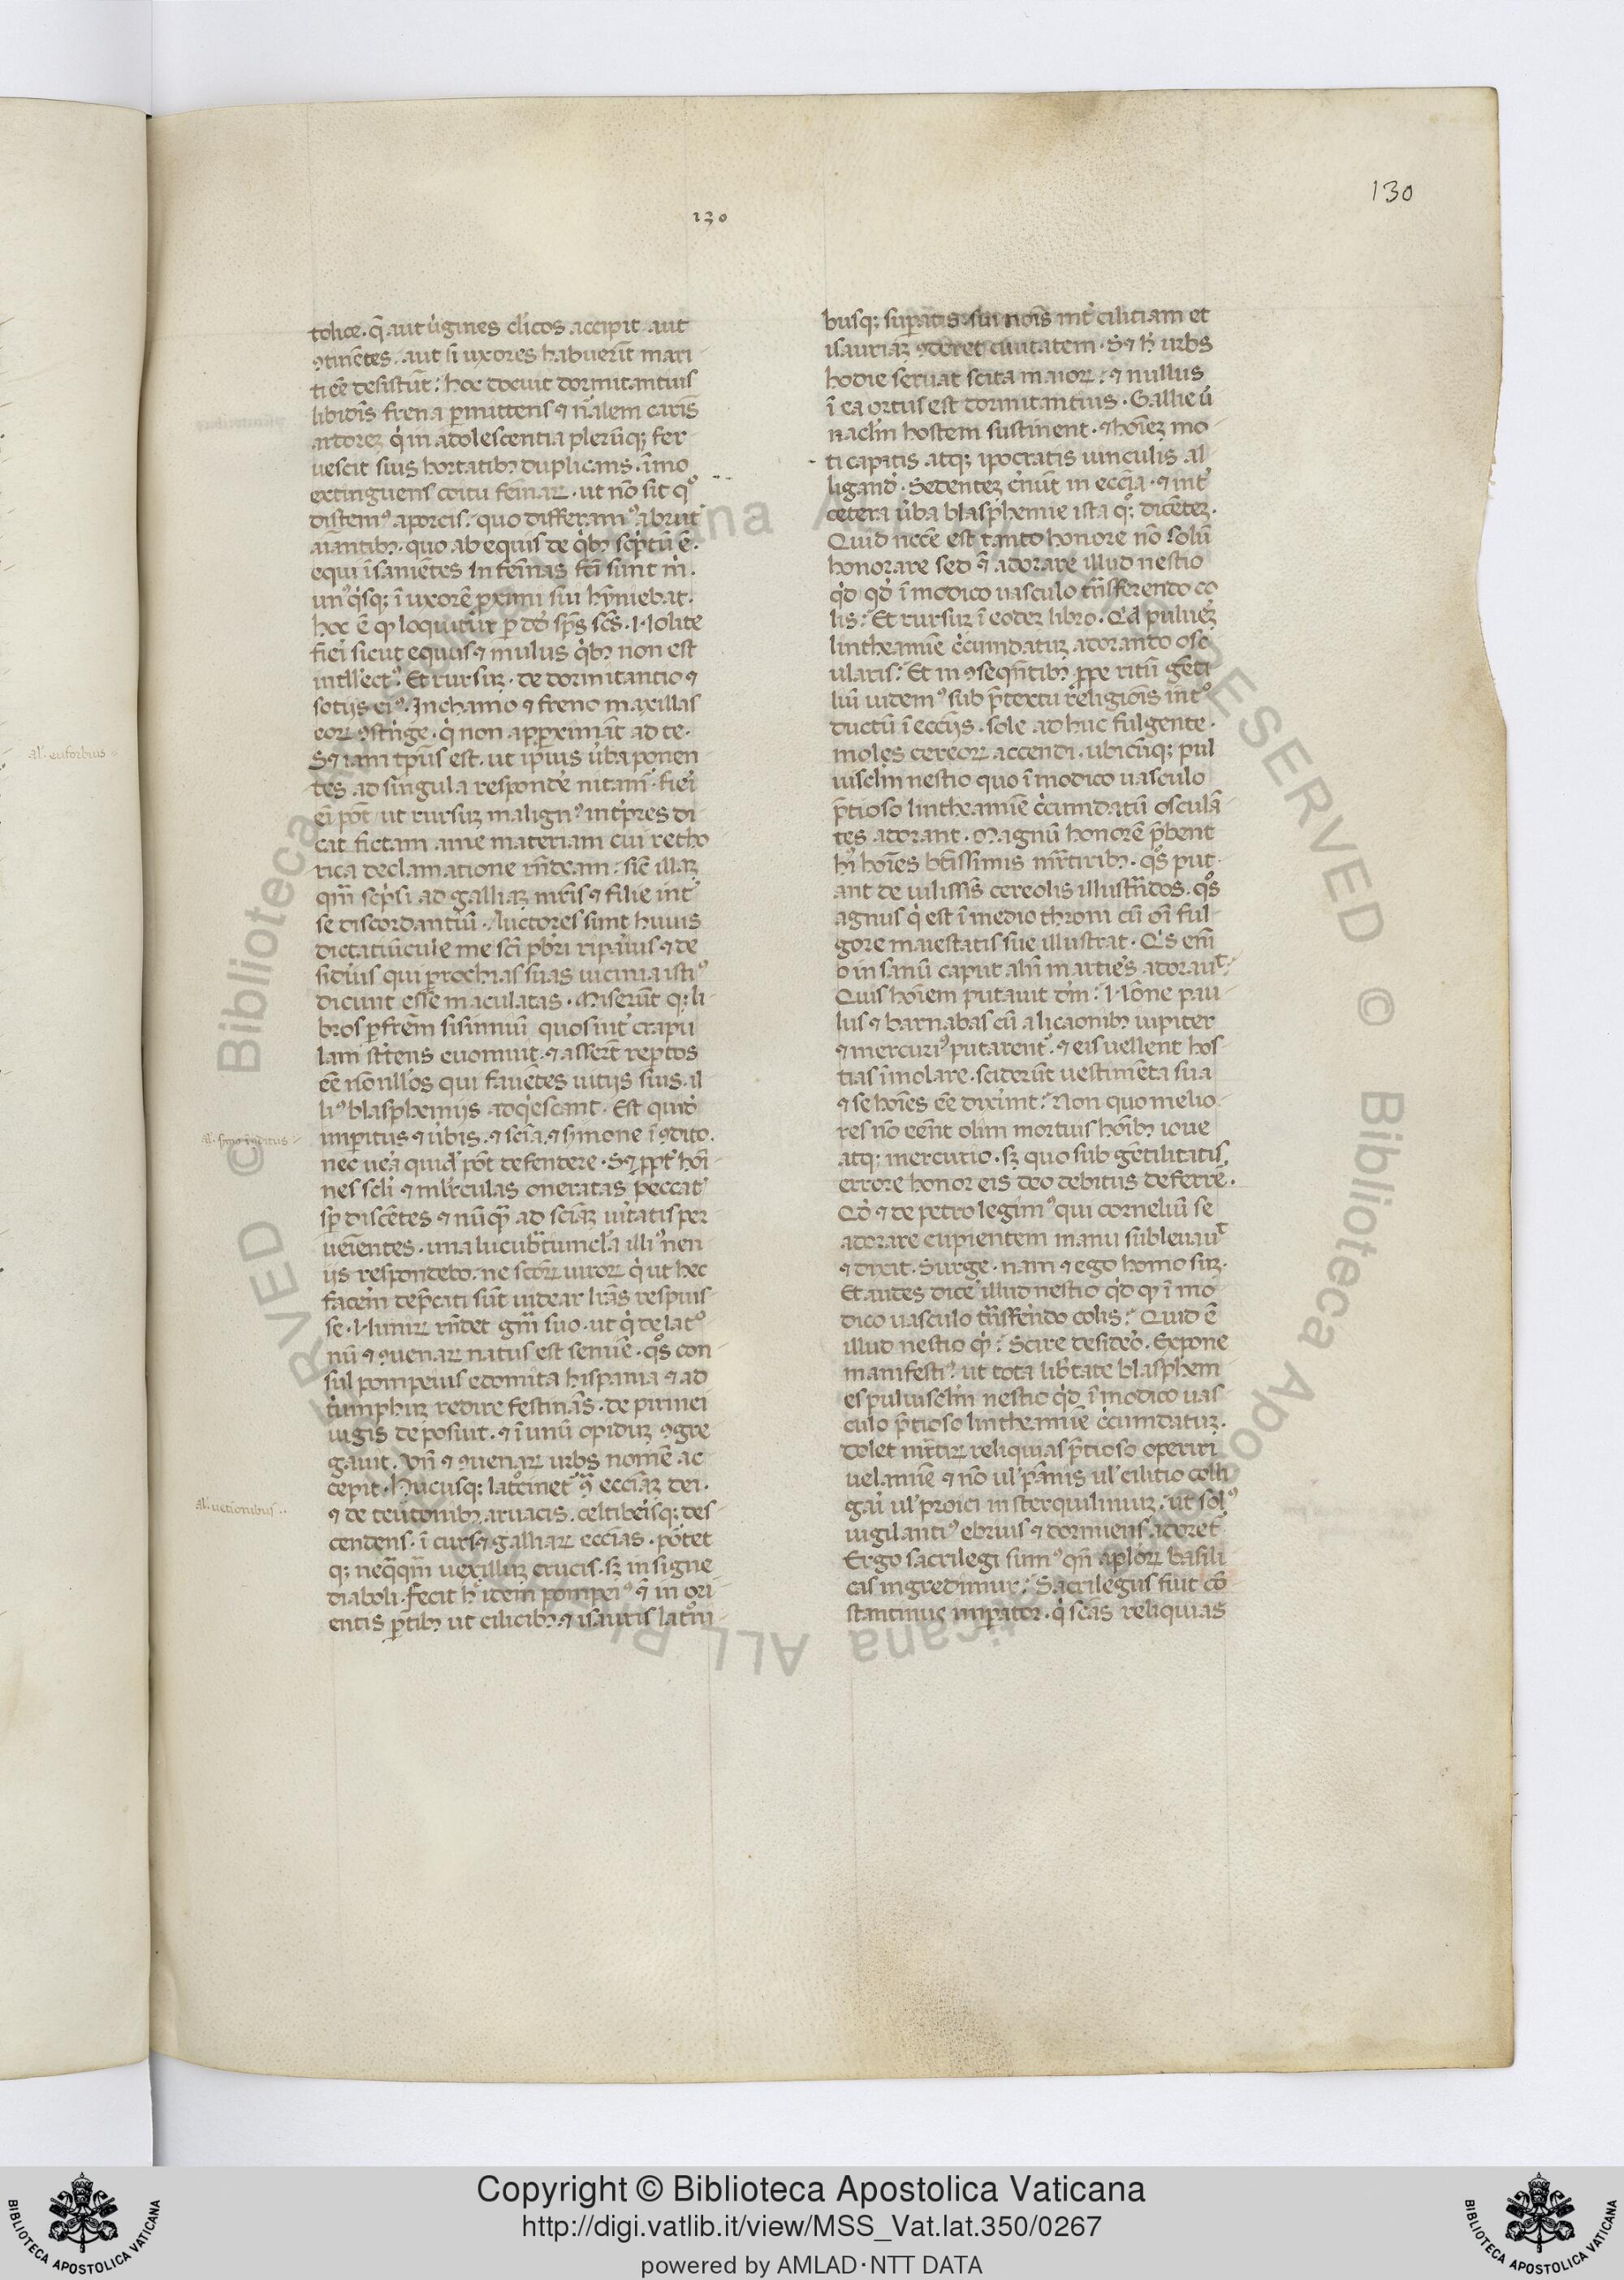 130
130
tolice. q̄ aut ủgines cl̓icos accipit aut
ꝯtinẽtes. aut si uxores habuerīt mari
ti eē desistūt: hoc docuit dormitantius
libidīs frena ꝑmittens ⁊ nālem carīs
ardoreꝫ q̇ in adolescentia plerūqꝫ fer
uescit suis hortatibꝫ duplicans. īmo
extinguens coitu feīnaꝝ. ut nō sit qͦ
distemꝰ aporcis. quo differamꝰ abrut
aīantibꝫ. quo ab equis de q̇bꝫ scṗtū ē.
equi īsanientes In feīnas fc̄i sunt m̓.
unꝰq̇sqꝫ ī uxorē ꝓximi sui hīniebat.
hoc ē ꝙ loquitur ꝑ dd̓ sp̄s sc̄s. Nolite
fiei sicut equus ⁊ mulus q̇bꝫ non est
intll̓ectꝰ. Et rursuꝫ. de dormitantio ⁊
sotijs eiꝰ. Inchamo ⁊ freno maxillas
eoꝝ ꝯstr̓nge. q̇ non apꝓximāt ad te.
Sꝫ iam tp̄us est. ut ip̄ius ủba ponen
tes ad singula respond̓e nitam̓. fiei
eī pōt ut rursuꝫ malignꝰ int̓pres di
cat fictam ame materiam cui retho
rica declamatione rn̄deam: sic̄ illaꝫ
qm̄ scp̓si ad galliaꝫ mr̄is ⁊ filie int̓
se discordantiū. Auctores sunt huius
dictatiuncule me sc̄i pbr̄i riparius ⁊ de
siderius qui ꝑrochias suas uicinia istiꝰ
dicunt esse maculatas. Miserūt qꝫ li
bros ꝑ frēm sisinniū quos int̓ crapu
lam st̓tens euomuit. ⁊ assert̄ reptos
eē nōnllos qui fauētes uitijs suis. il
liꝰ blasphemijs adq̇escant. Est quid̓
imꝑitus ⁊ ủbis. ⁊ sciā. ⁊ s̓mone īꝯdito.
nec uera quid̓ pōt defendere. Sꝫ ꝓpt̓ hoī
nes scl̓i ⁊ mlr̓culas oneratas peccat̓
sp̄ discētes ⁊ nūqꝫ ad sciāꝫ ủitatis per
ueīentes. una lucubr̄tiuncl̓a illiꝰ nen
ijs respondebo. ne sc̄oꝝ uiroꝝ q̇ ut hec
facem̓ dep̄cati sūt uidear lr̄as respuis
se. Nimiꝝ rn̄det gn̄i suo. ut q̇ de latͦ
nū ⁊ ꝯuenaꝝ natus est semīe. qͦs con
sul pompeius edomita hispania ⁊ ad
t̓umphuꝫ redire festinās. de pirinei
iugis deposuit. ⁊ ī unū opiduꝫ ꝯgre
gauit. Vn̄ ⁊ ꝯuenaꝝ urbs nomē ac
cepit. Hucusqꝫ latͦcinet̓ ꝯ̄ eccl̄iaꝫ dei.
⁊ de teutonibꝫ. aruacis. celtiberisqꝫ des
cendens. ī curs⁊ galliaꝝ eccl̄ias. pōtet
qꝫ neqͣqm̄ uexilluꝫ crucis. sꝫ insigne
diaboli. fecit h̓ idem pompeiꝰ ⁊̄ in ori
entis ꝑtibꝫ ut cilicibꝫ ⁊ isauris latͦni
busqꝫ suꝑatis sui noīs int̓ ciliciam et
isauriaꝫ ꝯderet ciuitatem. Sꝫ h̓ urbs
hodie seruat scita maioꝝ. ⁊ nullus
ī ea ortus est dormitantius. Gallie ủ
nacl̄m hostem sustinent. ⁊ hoīeꝫ mo
ti capitis atqꝫ ipocratis uinculis al
ligand̓. Sedenteꝫ c̓nūt in eccl̄ia. ⁊ int̓
cetera ủba blasphemie ista qꝫ dicēteꝫ.
Quid nccē est tanto honore nō solū
honorare sed ⁊̄ adorare illud nestio
q̇d qd̓ ī modico uasculo tn̄sferendo co
lis: Et rursuꝫ ī eodeꝫ libro. Q̇d pulueꝫ
lintheamīe c̓cumdatuꝫ adorando osc
ularis: Et in ꝯseqn̄tibꝫ ꝓpe ritū gēti
liū uidemꝰ sub p̄textu religiōis intͦ
ductū ī eccl̄ijs. sole ad huc fulgente.
moles cereoꝝ accendi. ubicūqꝫ pul
uiscl̄m nestio quo ī modico uasculo
p̄tioso lintheamīe c̓cumdatū osculā
tes adorant. Magnū honorē p̄bent
hi hoīes btīssimis mr̄tiribꝫ. qͦs put
ant de uilissīs cereolis illustr̄ndos. qͦs
agnus q̇ est ī medio throni cū oī ful
gore maiestatis sue illustrat. Q̇s enī
o insanū caput alīn marties adorauͭ:
Quis hoīem putauit dm̄: Nōne pau
lus ⁊ barnabas cū alicaonibꝫ iupiter
⁊ mercuriꝰ putarent̓. ⁊ eis uellent hos
tias īmolare. sciderūt uestimēta sua
⁊ se hoīes eē dixerūt: Non quo melio
res nō eēnt olim mortuis hoībꝫ ioue
atqꝫ mercurio. sꝫ quo sub gētilitatis
errore honor eis deo debitus deferrē.
Qd̓ ⁊ de petro legimꝰ qui corneliū se
adorare cupientem manu subleuauͭ
⁊ dixit. Surge. nam ⁊ ego homo suꝫ.
Et audes dice illud nestio q̇d ꝙ ī mo
dico uasculo tn̄sferēdo colis: Quid ē
illud nestio q̇d: Scire desid̓o. Expone
manifestiꝰ ut tota lib̓tate blasphem
es puluiscl̄m nestio q̇d ī modico uas
culo p̄tioso lintheamīe c̓cumdatuꝫ.
dolet mr̄tiꝝ reliquias p̄tioso operiri
uelamīe ⁊ nō ul̓ pānis ul̓ cilitio colli
gari ul̓ proici in sterquiliniuꝫ. ut solꝰ
uigilantiꝰ ebrius ⁊ dormiens adoret̓.
Ergo sacrilegi sumꝰ qn̄ apl̄oꝝ basili
cis ingredimur: Sacrilegus fuit cō
stantinus imꝑator. q̇ sc̄as reliquias
al'. euforbius
al'. uectonibus..
Copyright © Biblioteca Apostolica Vaticana
http://digi.vatlib.it/view/MSS_Vat.lat.350/0267
powered by AMLAD·NTT DATA
BIBLIOTECA APOSTOLICA VATICANA
BIBLIOTECA APOSTOLICA VATICANA